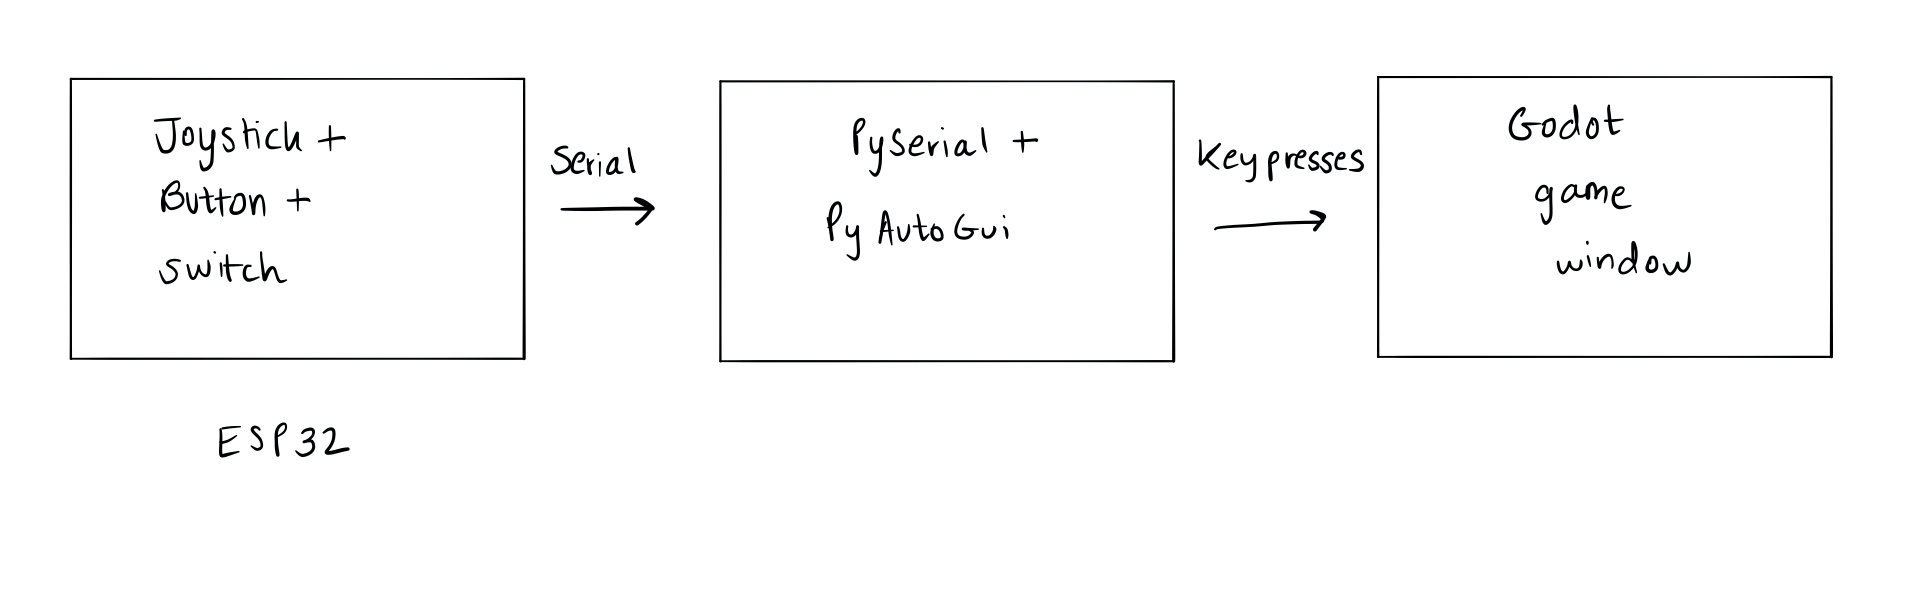 Joystick +
Button +
switch
ESP32
Serial
PySerial +
Py AutoGui
Keypresses
Godot
game
window